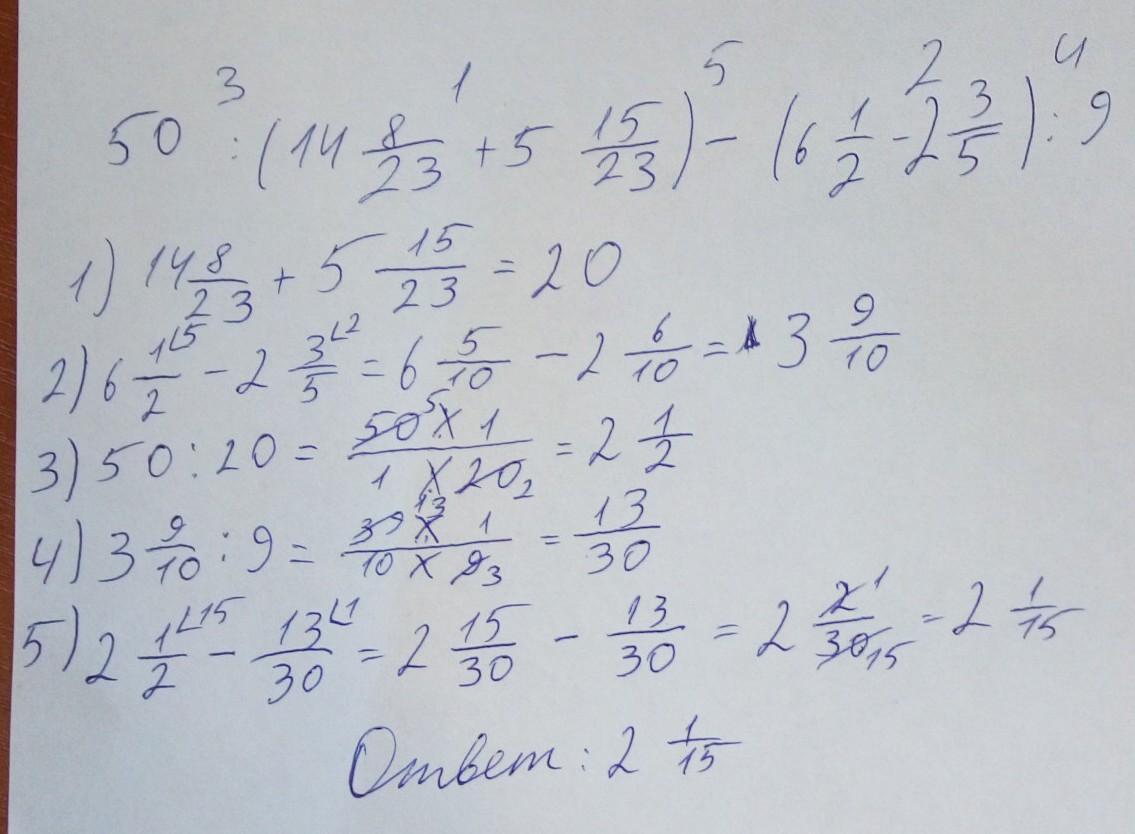 50 : (14 8/23 + 5 15/23) - (6 1/2 - 2 3/5) : 9
3 1 5 2 4
1) 14 8/23 + 5 15/23 = 20
2) 6 1/2 ∟5 - 2 3/5 ∟2 = 6 5/10 - 2 6/10 = 3 9/10
3) 50 : 20 = 50 5 × 1 / 1 × 20 2 = 2 1/2
4) 3 9/10 : 9 = 39 13 × 1 / 10 × 9 3 = 13/30
5) 2 1/2 ∟15 - 13/30 ∟1 = 2 15/30 - 13/30 = 2 2 1 / 30 15 = 2 1/15
Ответ: 2 1/15